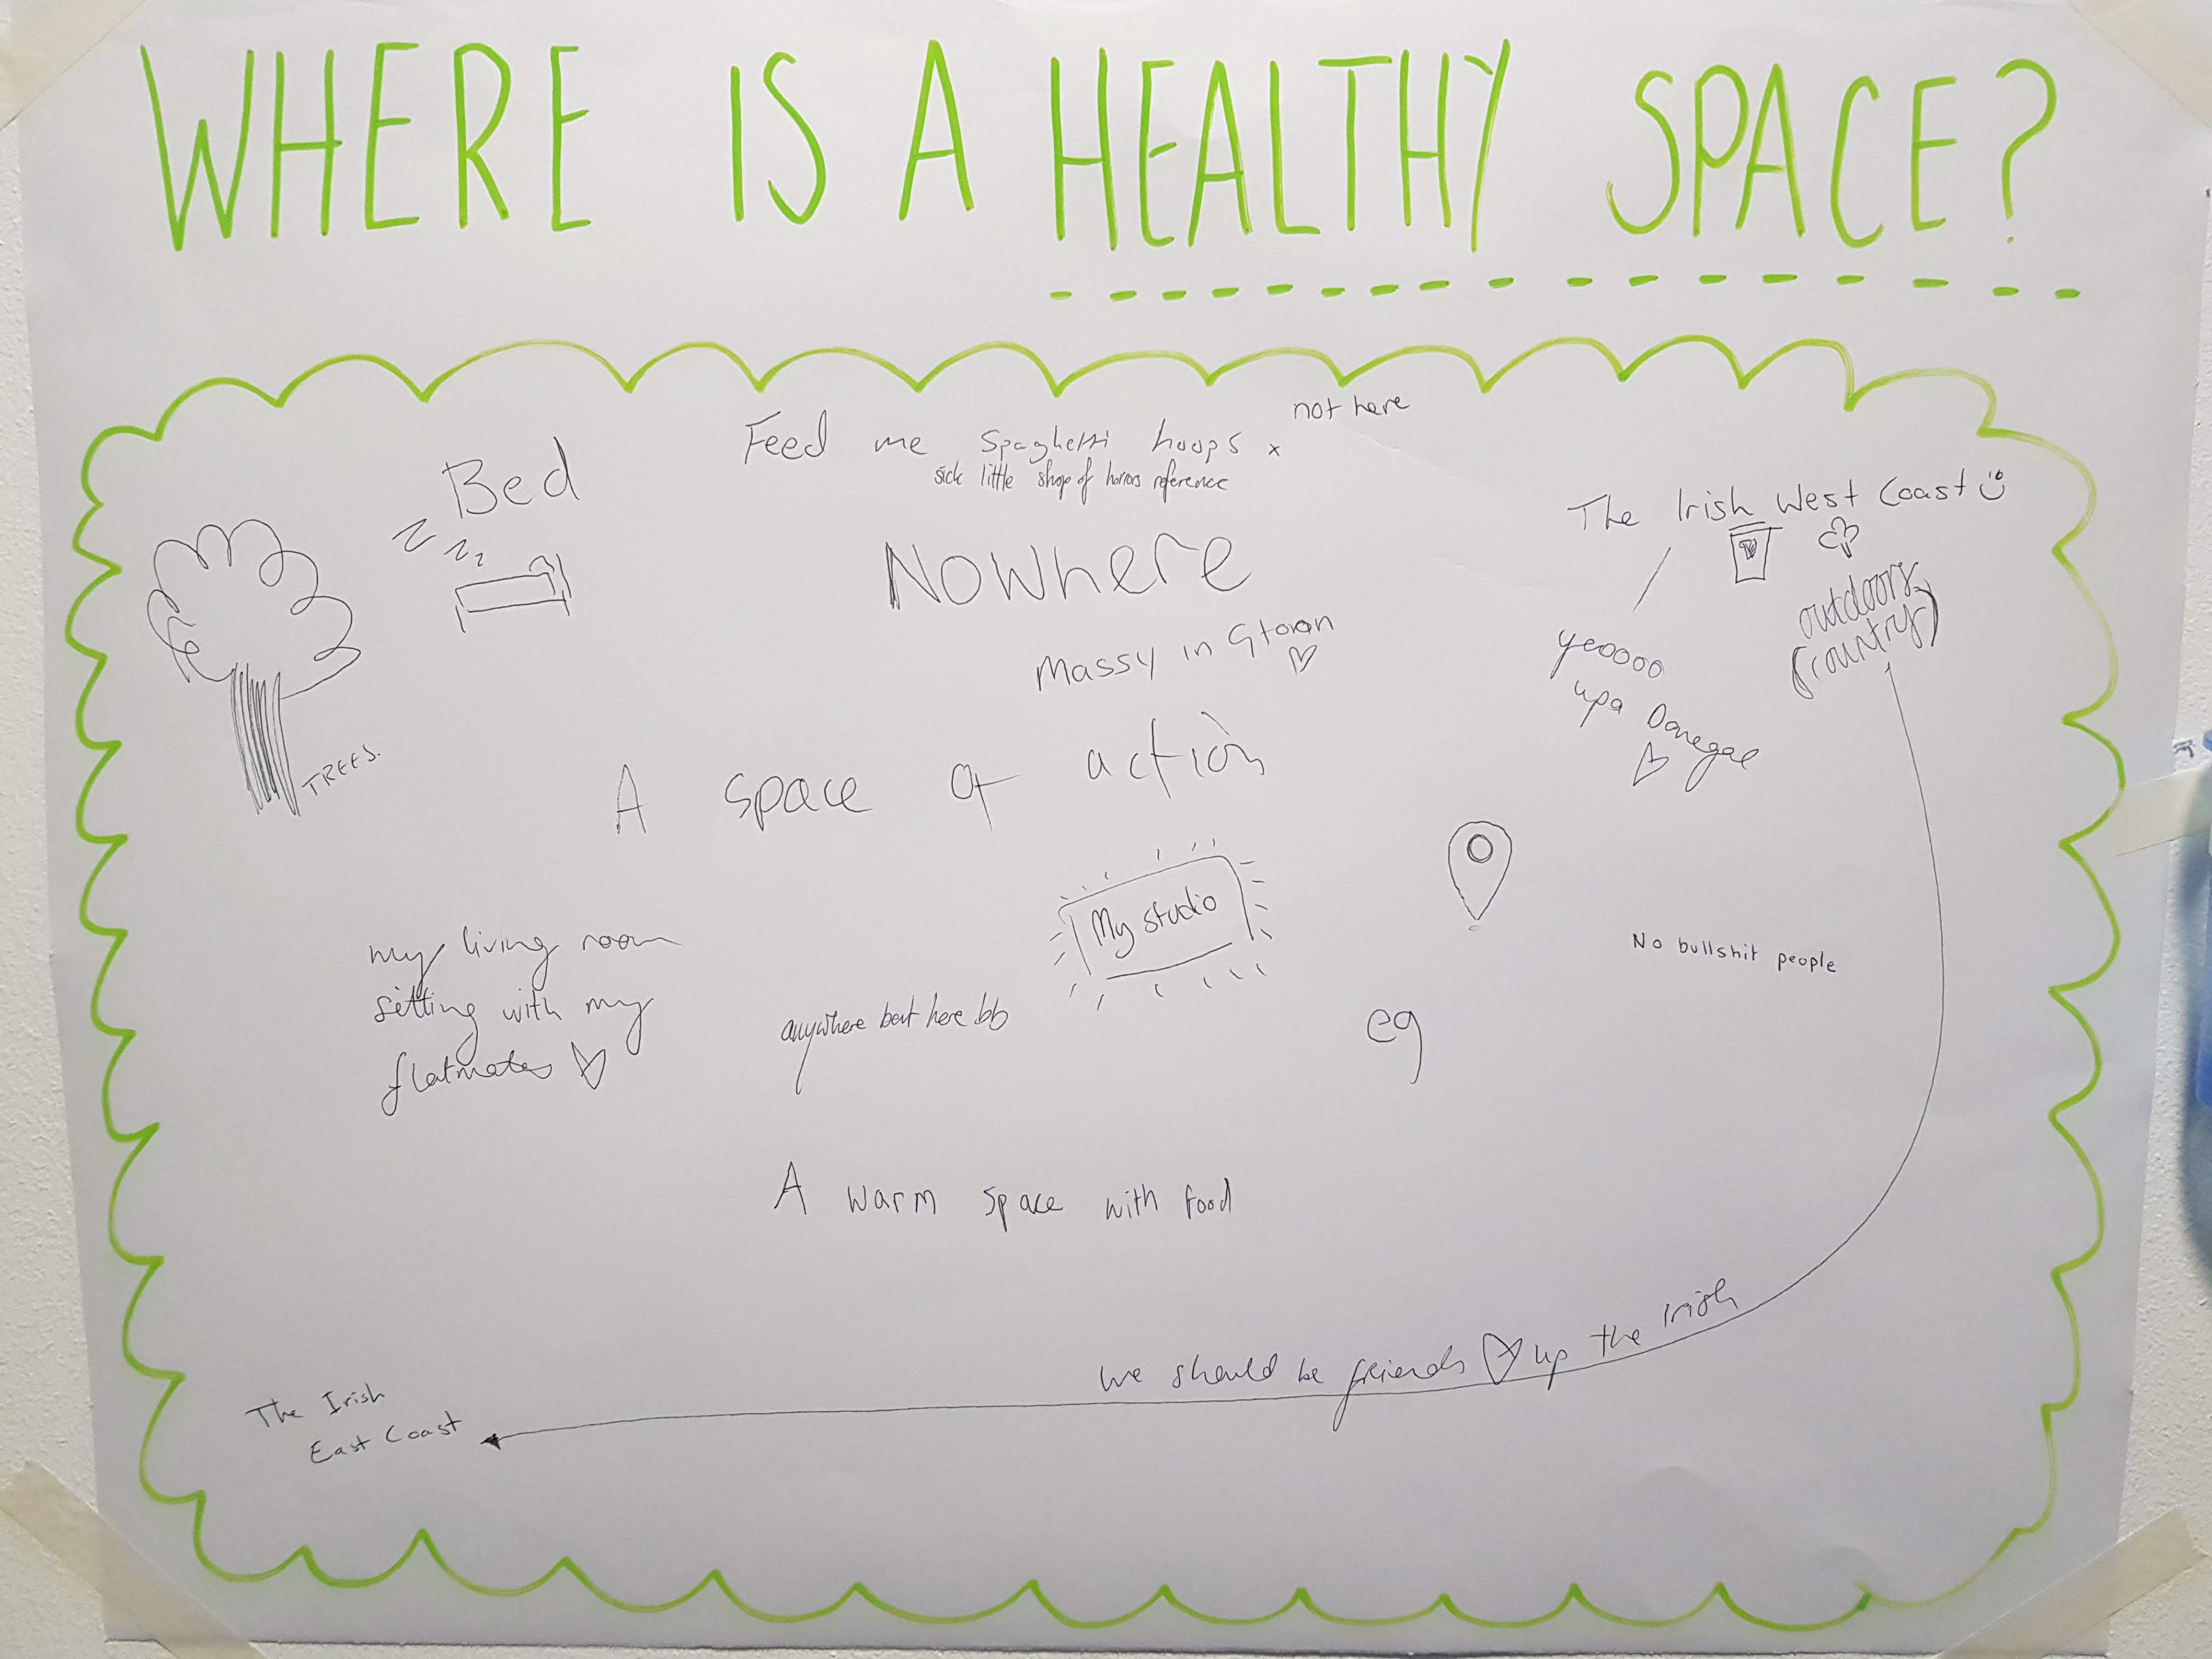 WHERE IS A HEALTHY SPACE?
not here
Feed me Spaghetti hoops x
sick little shop of horrors reference
Bed
z z z
The Irish West Coast
Nowhere
outdoors
(country)
Massy in Gtown
yeoooo
upa Donegal
TREES.
A space of action
My studio
my living room
sitting with my
flatmates
No bullshit people
anywhere but here bb
eg
A warm space with food
we should be friends up the Irish
The Irish
East Coast